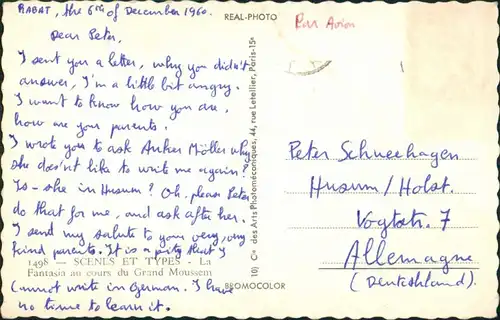 RABAT, the 6th of December 1960.
Dear Peter,
I sent you a letter, why you didn't
answer, I'm a little bit angry.
I want to know how you are,
how are your parents.
I wrote you to ask Anken Möller why
she doesn't like to write me again?
Is-she in Husum? Oh. please Peter
do that for me, and ask after her.
I send my salute to your very, very
kind parents. It is a pity that I
1498 — SCENES ET TYPES - La
Fantasia au cours du Grand Moussem
cannot write in German. I have
no time to learn it.
REAL-PHOTO
Par Avion
10, Cie des Arts Photomécaniques, 44, rue Letellier, Paris-15e
BROMOCOLOR
Peter Schneehagen
Husum/Holst.
Vogtstr. 7
Allemagne
(Deutschland).